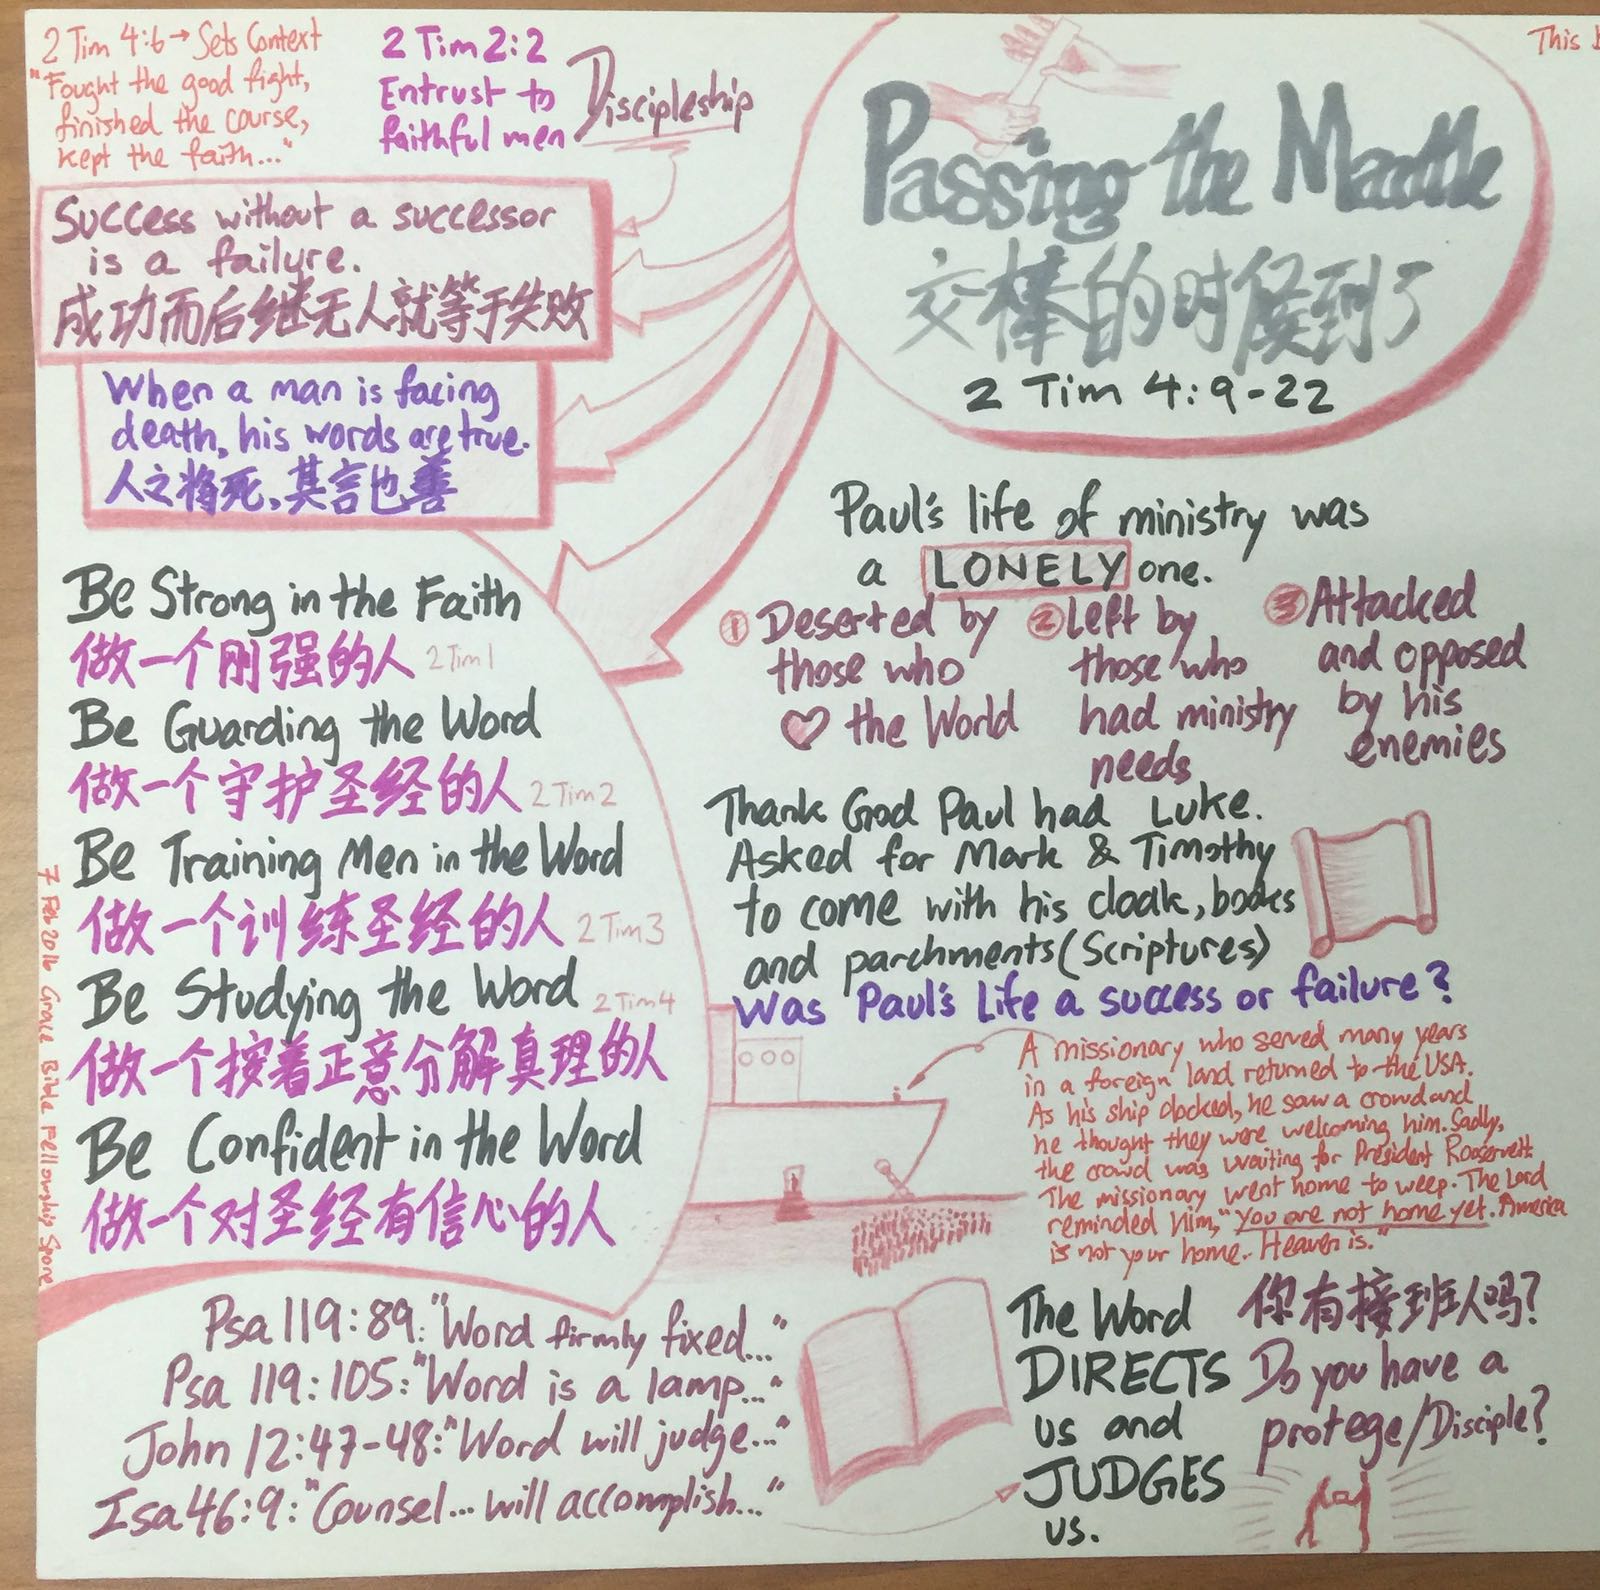 2 Tim 4:6 → Sets Context
"Fought the good fight,
finished the course,
kept the faith..."
2 Tim 2:2
Entrust to
faithful men
Discipleship
This
Passing the Mantle
交棒的时候到了
2 Tim 4:9-22
Success without a successor
is a failure.
成功而后继无人就等于失败
When a man is facing
death, his words are true.
人之将死,其言也善
Be Strong in the Faith
做一个刚强的人 2 Tim 1
Be Guarding the Word
做一个守护圣经的人 2 Tim 2
Be Training Men in the Word
做一个训练圣经的人 2 Tim 3
Be Studying the Word 2 Tim 4
做一个按着正意分解真理的人
Be Confident in the Word
做一个对圣经有信心的人
7 Feb 2016 Grace Bible Fellowship Spore
Paul's life of ministry was
a LONELY one.
① Deserted by
those who
♡ the World
② Left by
those who
had ministry
needs
③ Attacked
and opposed
by his
enemies
Thank God Paul had Luke.
Asked for Mark & Timothy
to come with his cloak, books
and parchments (Scriptures)
Was Paul's Life a success or failure?
A missionary who served many years
in a foreign land returned to the USA.
As his ship docked, he saw a crowd and
he thought they were welcoming him. Sadly,
the crowd was waiting for President Roosevelt.
The missionary went home to weep. The Lord
reminded him, "You are not home yet. America
is not your home. Heaven is."
Psa 119:89: "Word firmly fixed..."
Psa 119:105: "Word is a lamp..."
John 12:47-48: "Word will judge..."
Isa 46:9: "Counsel... will accomplish..."
The Word
DIRECTS
us and
JUDGES
us.
你有接班人吗?
Do you have a
protege/Disciple?